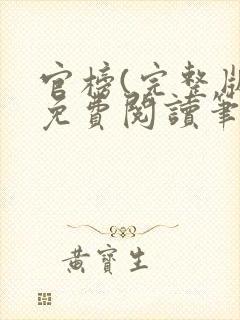 官榜(完整版
免費閱讀筆
黃寶生